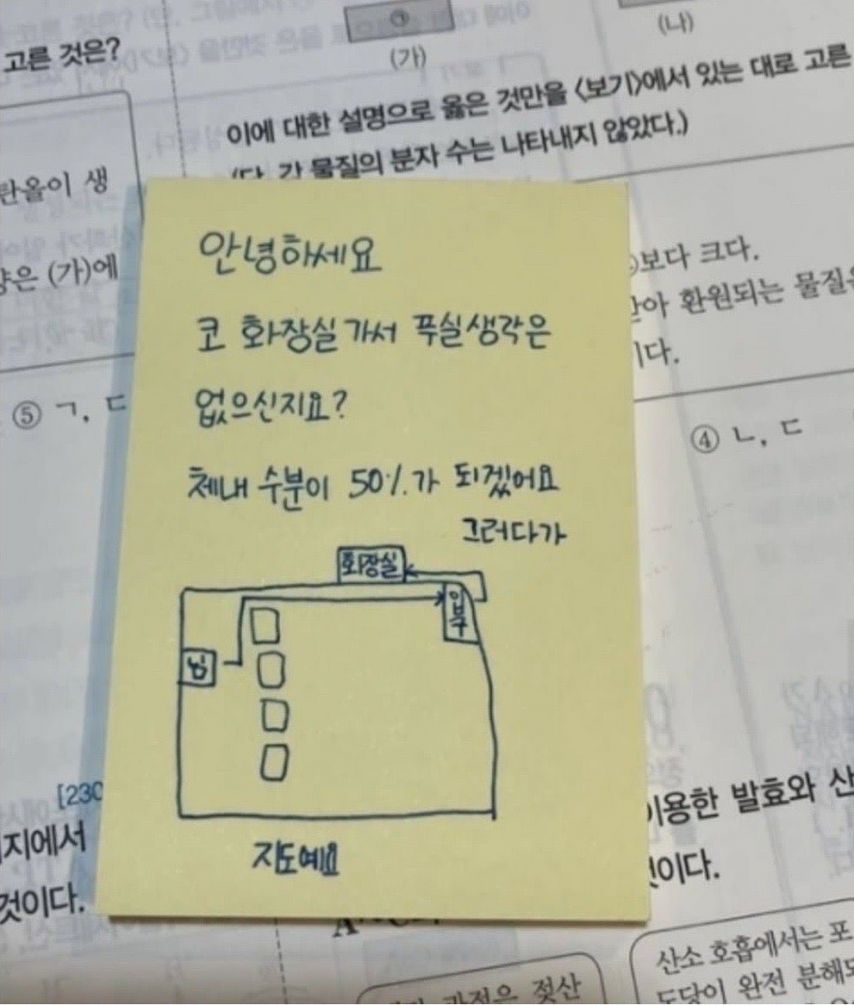 고른 것은?
(가)
(나)
이에 대한 설명으로 옳은 것만을 <보기>에서 있는 대로 고른
각 물질의 분자 수는 나타내지 않았다.)
탄올이 생
(가)에
보다 크다.
환원되는 물질은
이다.
⑤ ㄱ, ㄷ
④ ㄴ, ㄷ
안녕하세요
코 화장실가서 푸실생각은
없으신지요?
체내 수분이 50%가 되겠어요
그러다가
화장실
입구
님
지도예요
[230
지에서
것이다.
이용한 발효와 산
것이다.
산소 호흡에서는 포
도당이 완전 분해되
과정은 젖산